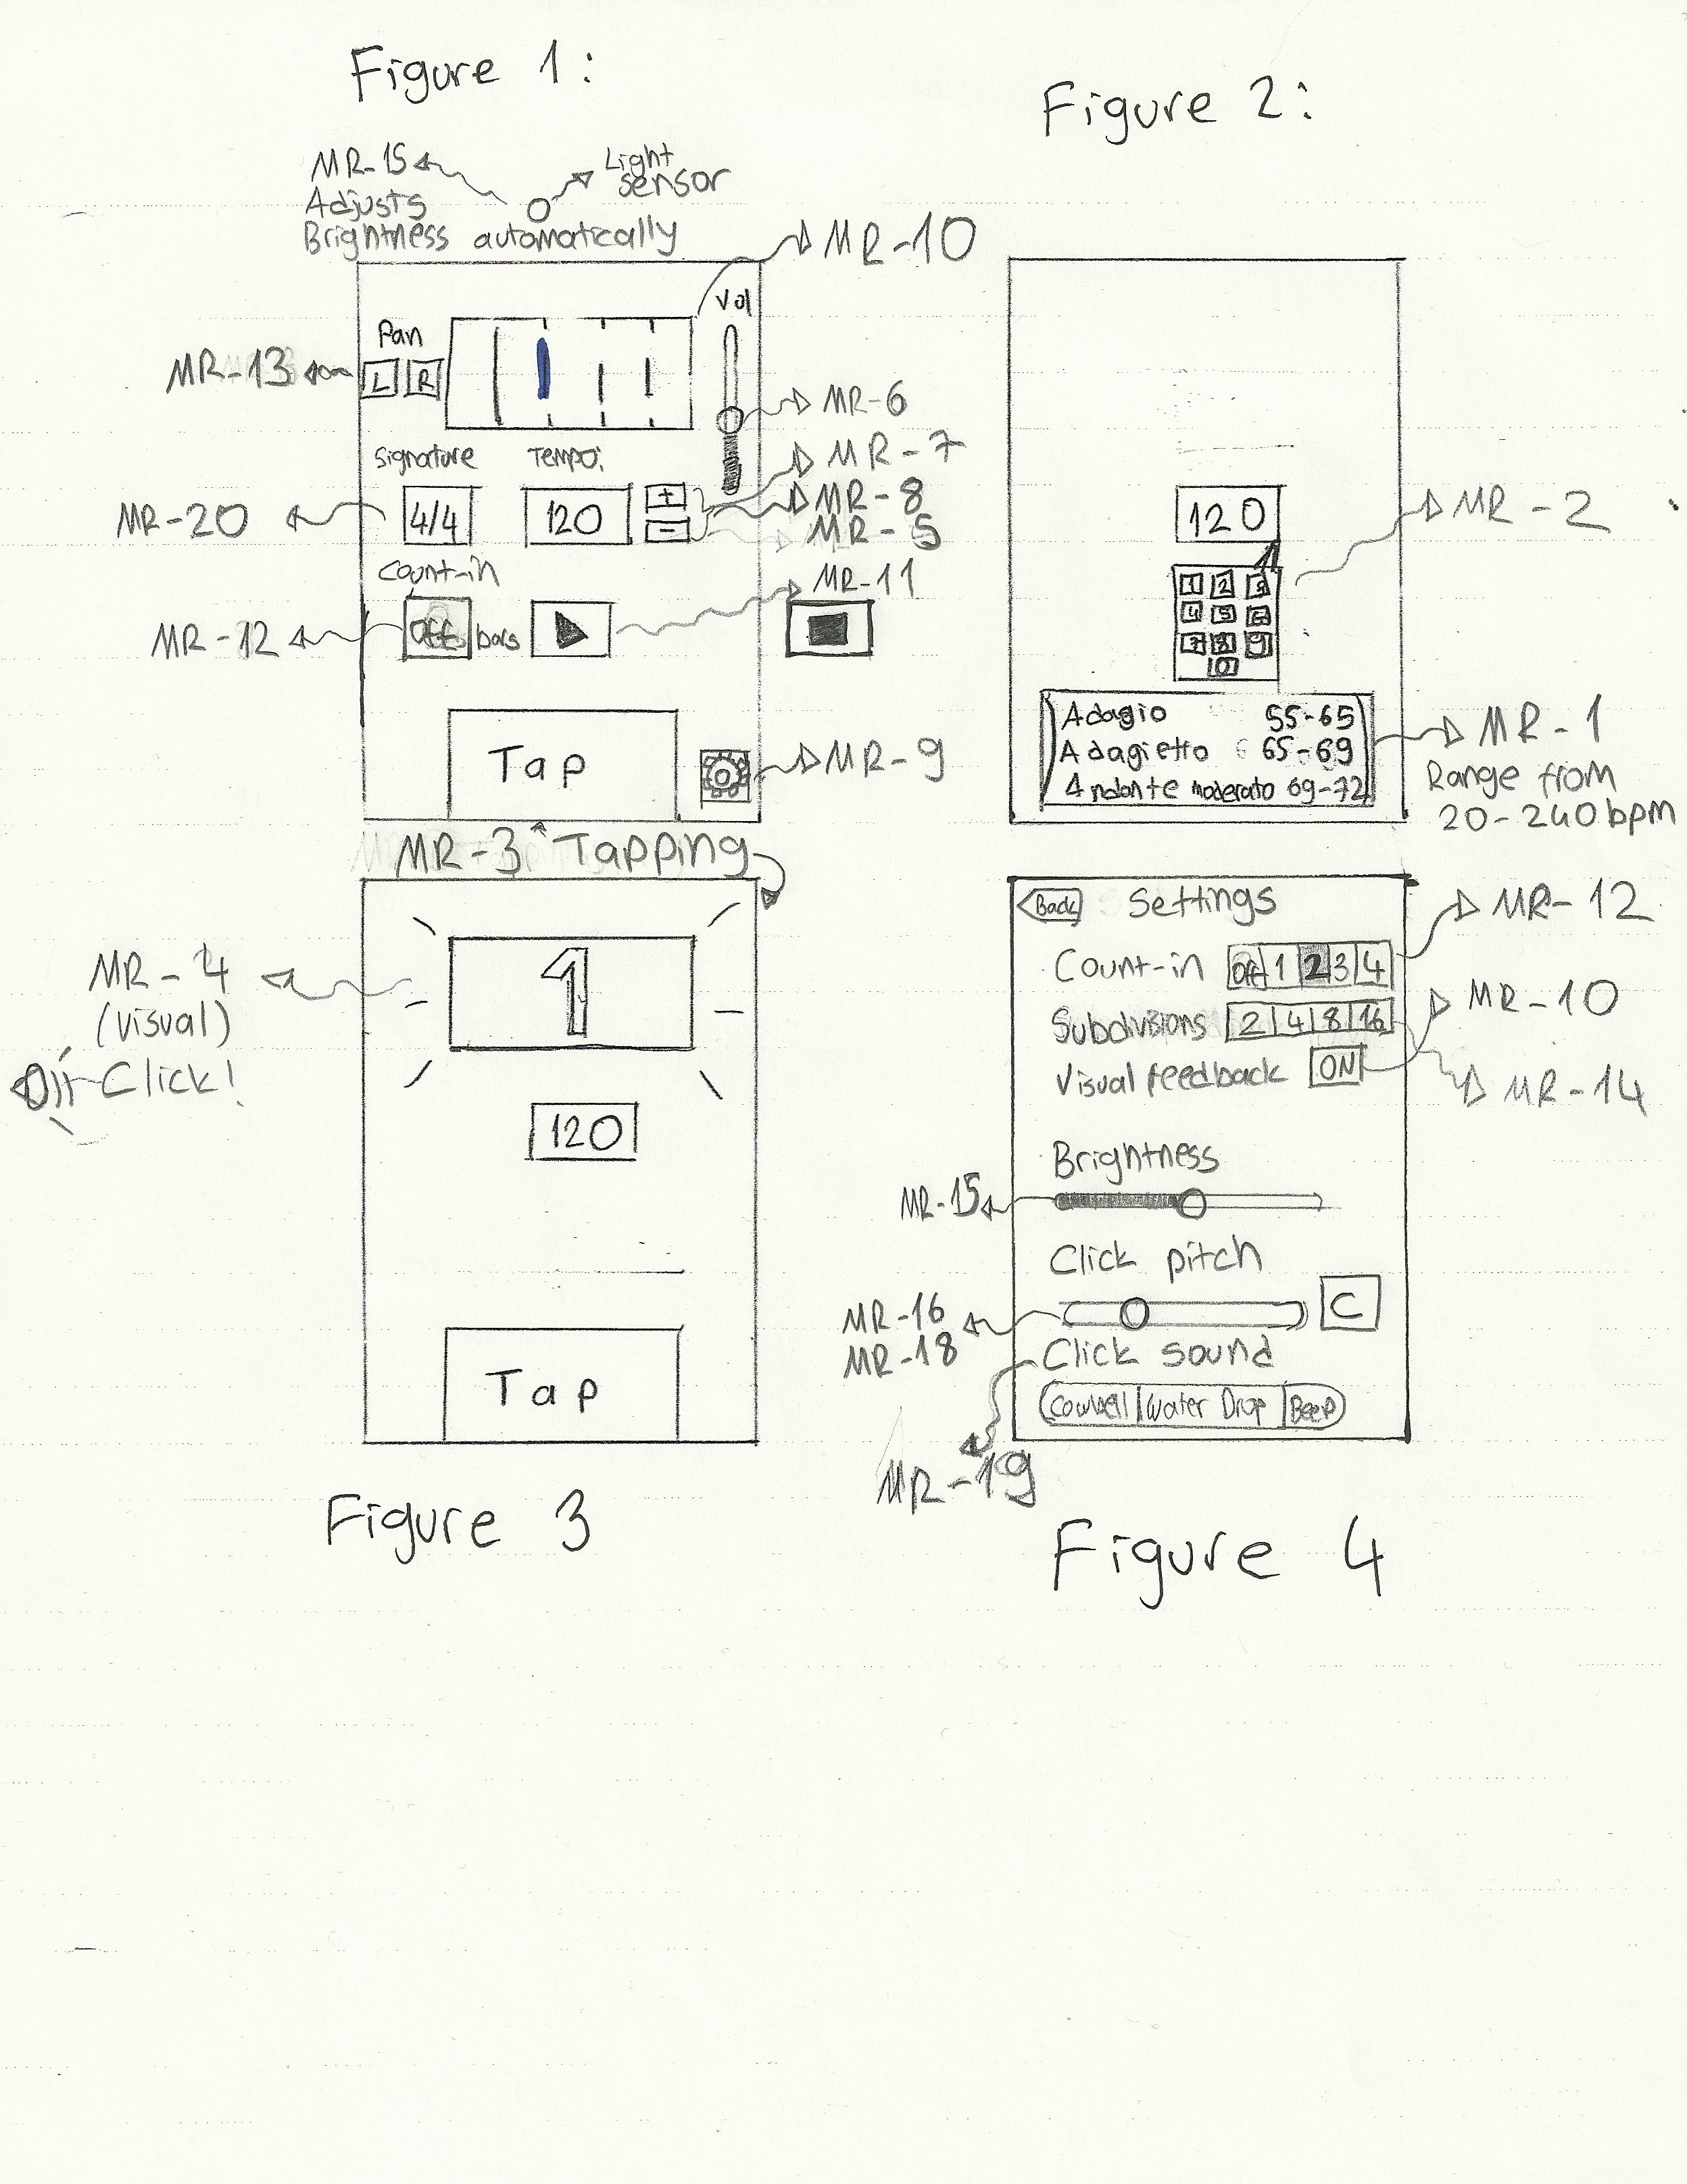 Figure 1:
MR-15
Adjusts
Brightness automatically
Light
sensor
MR-10
Vol
Pan
L R
MR-13
MR-6
Signature
Tempo:
MR-7
MR-8
MR-5
MR-20
4/4
120
+
-
Count-in
MR-11
MR-12
Off bars
Tap
MR-9
MR-3 Tapping
Figure 2:
120
MR-2
1 2 3
4 5 6
7 8 9
0
Adagio 55-65
Adagietto 65-69
Andante moderato 69-72
MR-1
Range from
20-240 bpm
1
MR-4
(visual)
Click!
120
Tap
Figure 3
Back Settings
MR-12
Count-in Off 1 2 3 4
MR-10
Subdivisions 2 4 8 16
Visual feedback ON
MR-14
Brightness
MR-15
Click pitch
C
MR-16
MR-18
Click sound
Cowbell Water Drop Beep
MR-19
Figure 4